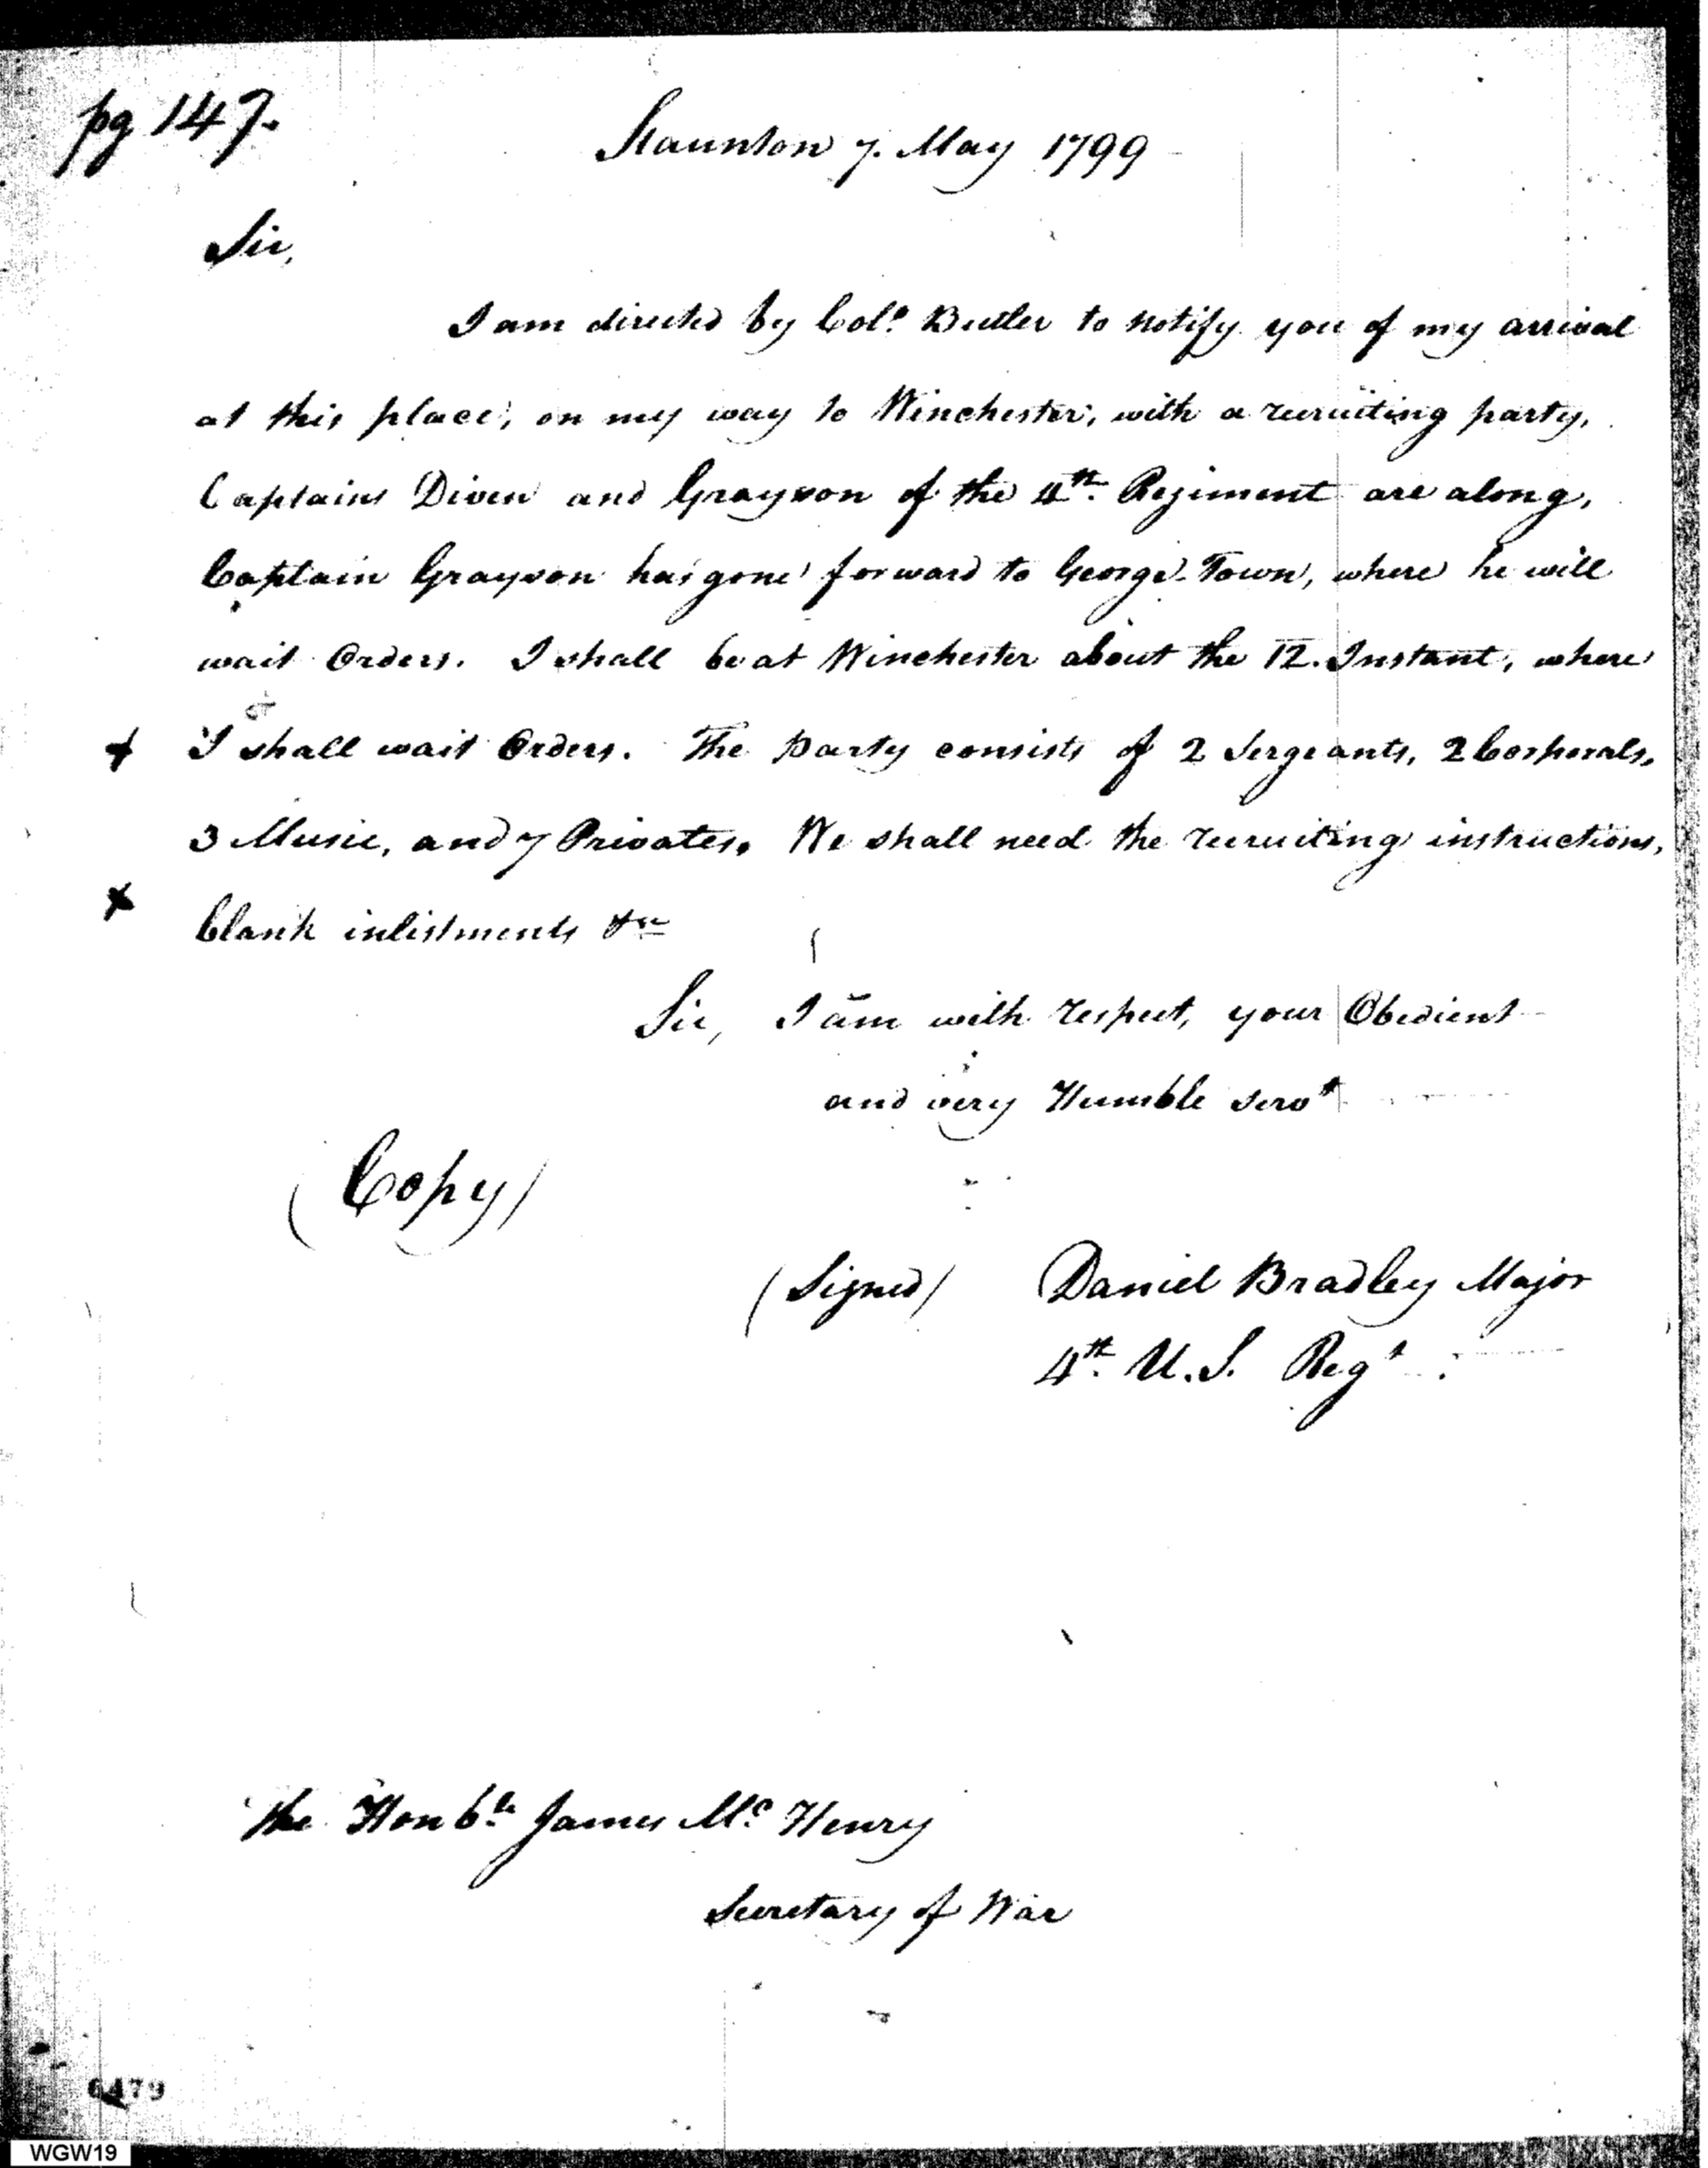 pg 147.
Staunton 7. May 1799
Sir,
I am directed by Col.º Butler to notify you of my arrival
at this place, on my way to Winchester, with a recruiting party,
Captains Diven and Grayson of the 4th. Regiment are along,
Captain Grayson has gone forward to George-Town, where he will
wait Orders. I shall be at Winchester about the 12. Instant, where
I shall wait Orders. The party consists of 2 Sergeants, 2 Corporals,
3 Music, and 7 Privates. We shall need the recruiting instructions,
blank inlistments &c
Sir, I am with respect, your Obedient
and very Humble servt
(Copy)
(Signed) Daniel Bradley Major
4th. U.S. Regt
The Honble. James Mc. Henry
Secretary of War
6479
WGW19